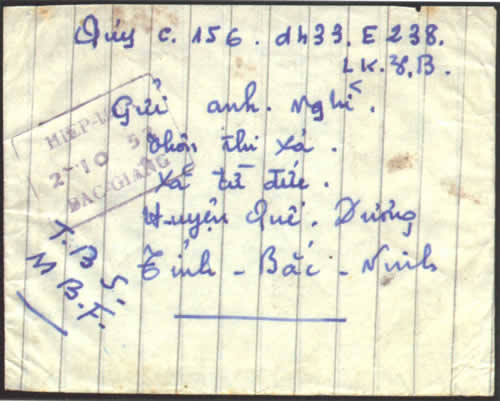 Quý c. 156. dh33. E 238.
LK. 3, B.
Gửi anh. Nghi
thôn thi xá.
xã từ đức.
Huyện Quế. Dương
Tỉnh - Bắc - Ninh
HIEP-
2-10 5
BAC-GIANG
T. B S.
M B. F.